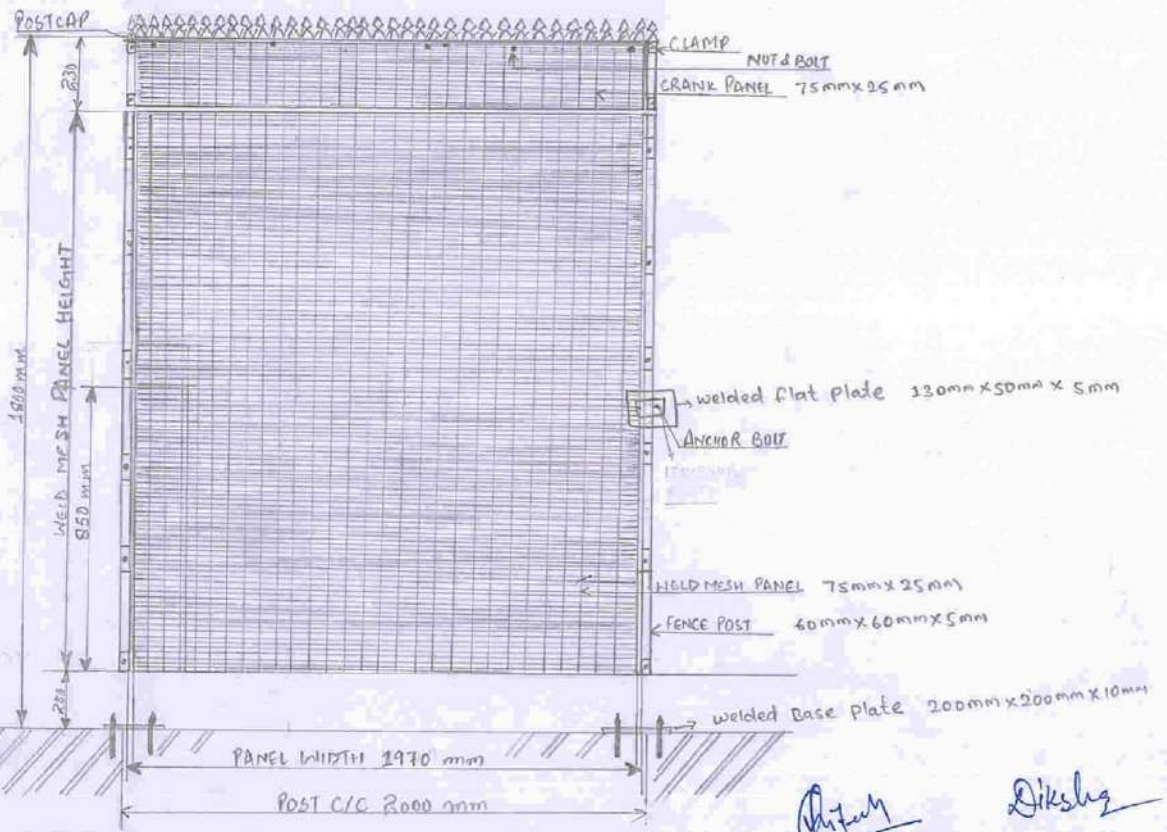 POSTCAP
CLAMP
NUT & BOLT
CRANK PANEL 75mm x 25mm
230
WELD MESH PANEL HEIGHT
1800 mm
850 mm
welded flat plate 130mm x 50mm x 5mm
ANCHOR BOLT
WELD MESH PANEL 75mm x 25mm
FENCE POST 60mm x 60mm x 5mm
welded Base plate 200mm x 200mm x 10mm
PANEL WIDTH 1970 mm
POST C/C 2000 mm
Diksha